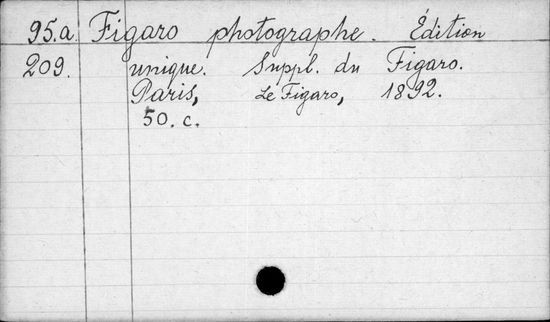 95.a Figaro photographe. Édition
209. unique. Suppl. du Figaro.
Paris, Le Figaro, 1892.
50. c.